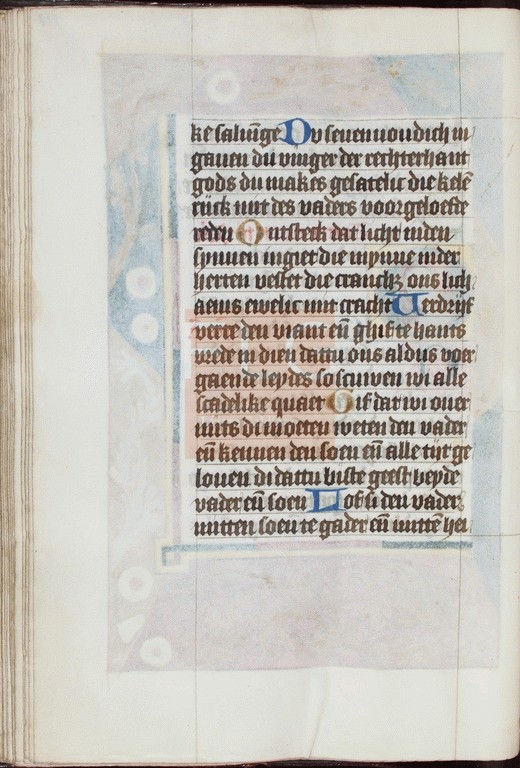 ke saluīge Du seuenuoudich in
gauen du vinger der rechterhant
gods du makes gesatelic die kelē
rijck mit des vaders voorgeloefte
reden Ontsteck dat licht inden
synnen ingiet die mynne inder
herten vestet die cranchz ons lich
aems ewelic mit cracht Uerdrijf
verre den viant eñ ghifte hants
vrede in dien dattu ons aldus voer
gaende leydes so scuwen wi alle
scadelike quaet Gif dat wi ouer
mits di moeten weten den vader
eñ kennen den soen eñ alle tijt ge
louen di dattu biste geest beyde
vader eñ soen Lof si den vader
mitten soen te gader eñ mittē hei